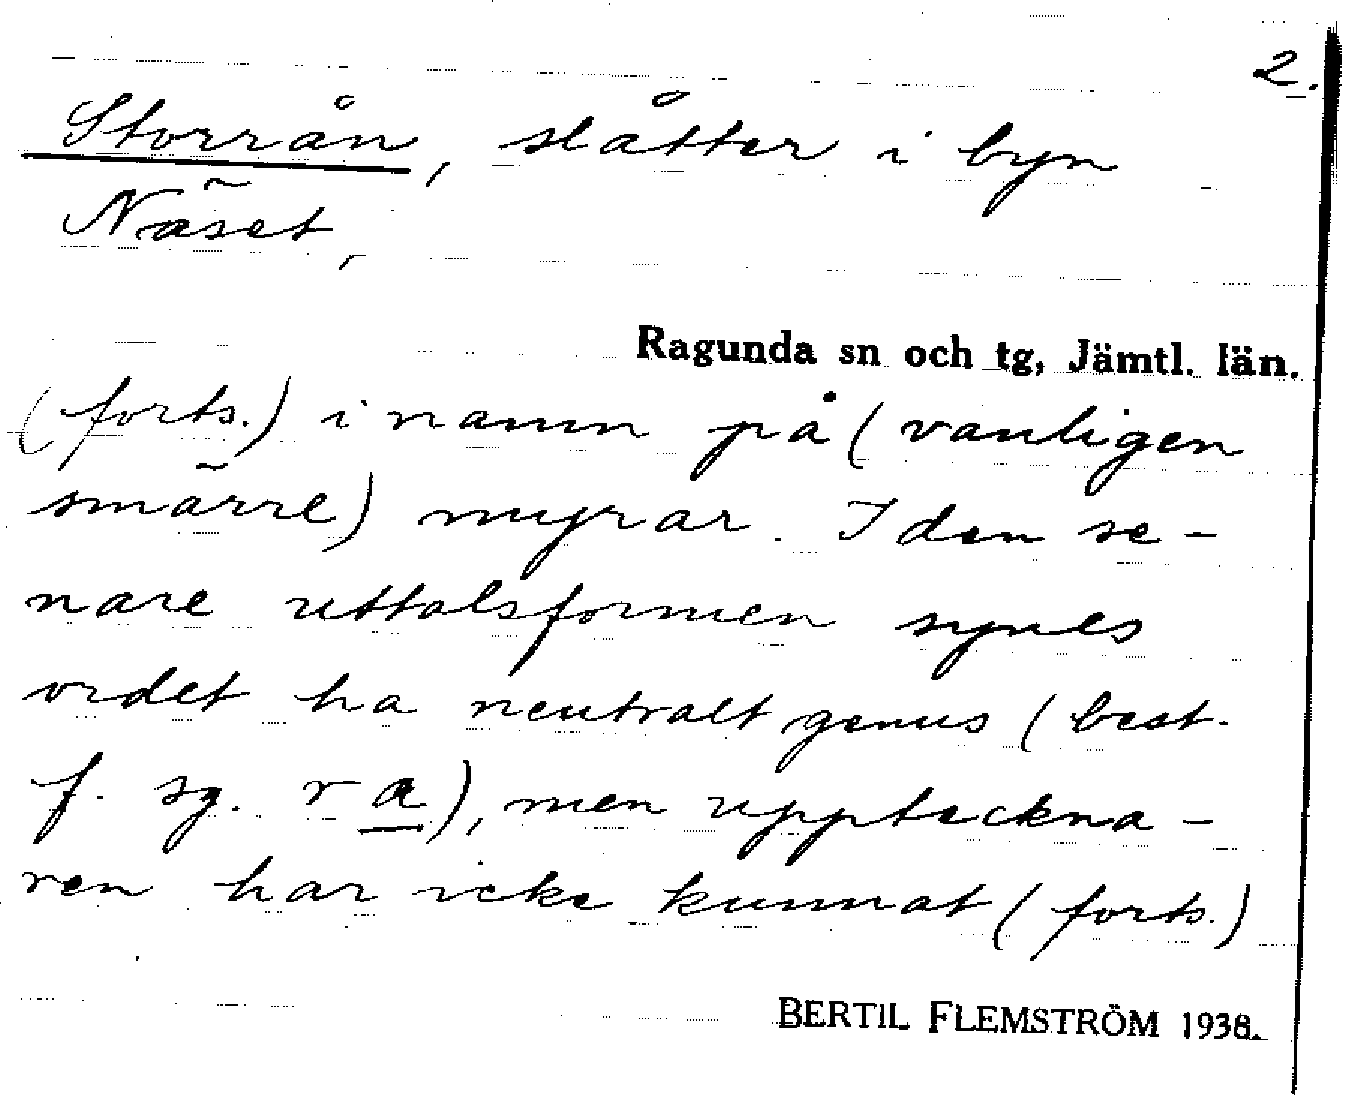 2.
Storrån, slåtter i byn
Näset,
Ragunda sn och tg, Jämtl. län.
(forts.) i namn på (vanligen
smärre) myrar. I den se-
nare uttalsformen synes
ordet ha neutralt genus (best.
f. sg. ra), men uppteckna-
ren har icke kunnat (forts.)
BERTIL FLEMSTRÖM 1938.